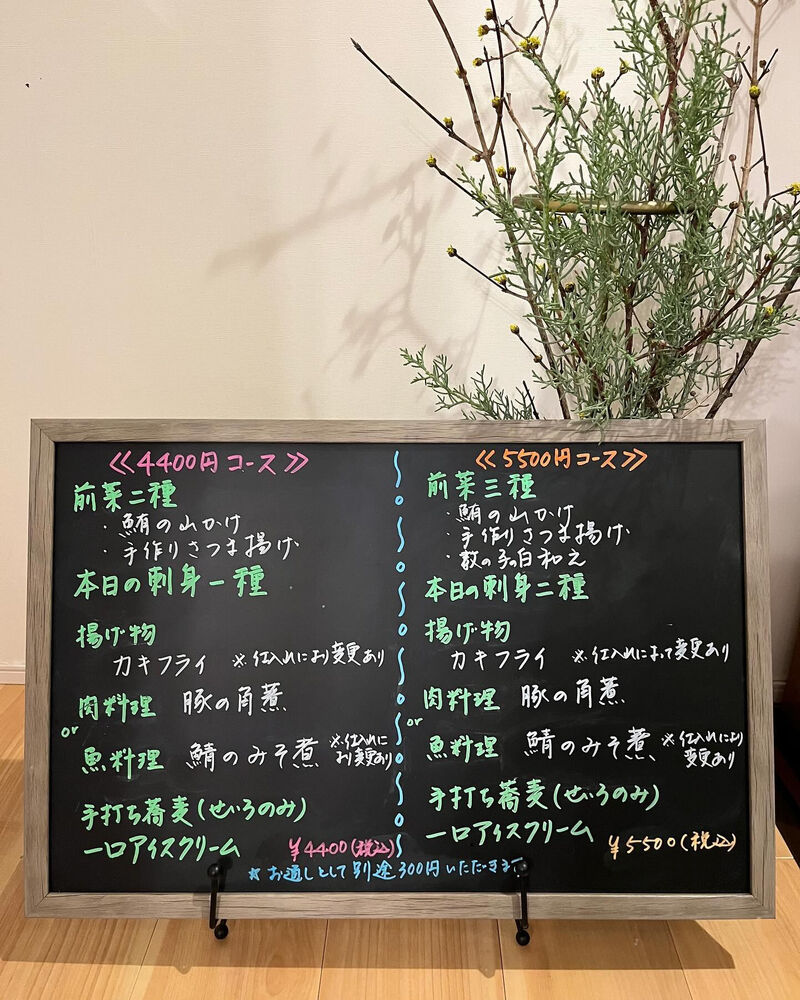 ≪4400円コース≫
前菜二種
・鮪の山かけ
・手作りさつま揚げ
本日の刺身一種
揚げ物
カキフライ ※仕入れにより変更あり
肉料理 豚の角煮
or
魚料理 鯖のみそ煮 ※仕入れに
より変更あり
手打ち蕎麦(せいろのみ)
一口アイスクリーム
¥4400(税込)
≪5500円コース≫
前菜三種
・鮪の山かけ
・手作りさつま揚げ
・数の子の白和え
本日の刺身二種
揚げ物
カキフライ ※仕入れによって変更あり
肉料理 豚の角煮
or
魚料理 鯖のみそ煮 ※仕入れにより
変更あり
手打ち蕎麦(せいろのみ)
一口アイスクリーム
¥5500(税込)
☆お通しとして別途300円いただきます